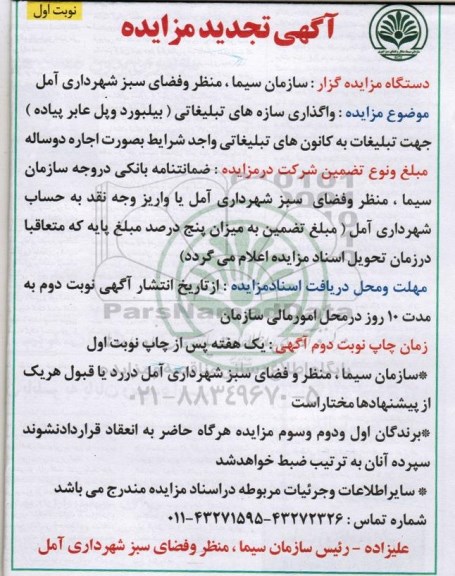 نوبت اول
آگهی تجدید مزایده
دستگاه مزایده گزار : سازمان سیما ، منظر وفضای سبز شهرداری آمل
موضوع مزایده : واگذاری سازه های تبلیغاتی ( بیلبورد وپل عابر پیاده )
جهت تبلیغات به کانون های تبلیغاتی واجد شرایط بصورت اجاره دوساله
مبلغ ونوع تضمین شرکت درمزایده : ضمانتنامه بانکی دروجه سازمان
سیما ، منظر وفضای سبز شهرداری آمل یا واریز وجه نقد به حساب
شهرداری آمل ( مبلغ تضمین به میزان پنج درصد مبلغ پایه که متعاقبا
درزمان تحویل اسناد مزایده اعلام می گردد)
مهلت ومحل دریافت اسنادمزایده : ازتاریخ انتشار آگهی نوبت دوم به
مدت ۱۰ روز درمحل امورمالی سازمان
زمان چاپ نوبت دوم آگهی : یک هفته پس از چاپ نوبت اول
*سازمان سیما ، منظر و فضای سبز شهرداری آمل دررد یا قبول هریک
از پیشنهادها مختاراست
*برندگان اول ودوم وسوم مزایده هرگاه حاضر به انعقاد قراردادنشوند
سپرده آنان به ترتیب ضبط خواهدشد
* سایراطلاعات وجرئیات مربوطه دراسناد مزایده مندرج می باشد
شماره تماس : ۴۳۲۷۲۳۲۶-۴۳۲۷۱۵۹۵-۰۱۱
علیزاده - رئیس سازمان سیما ، منظر وفضای سبز شهرداری آمل
۰۲۱-۸۸۳۴۹۶۷۰-۵